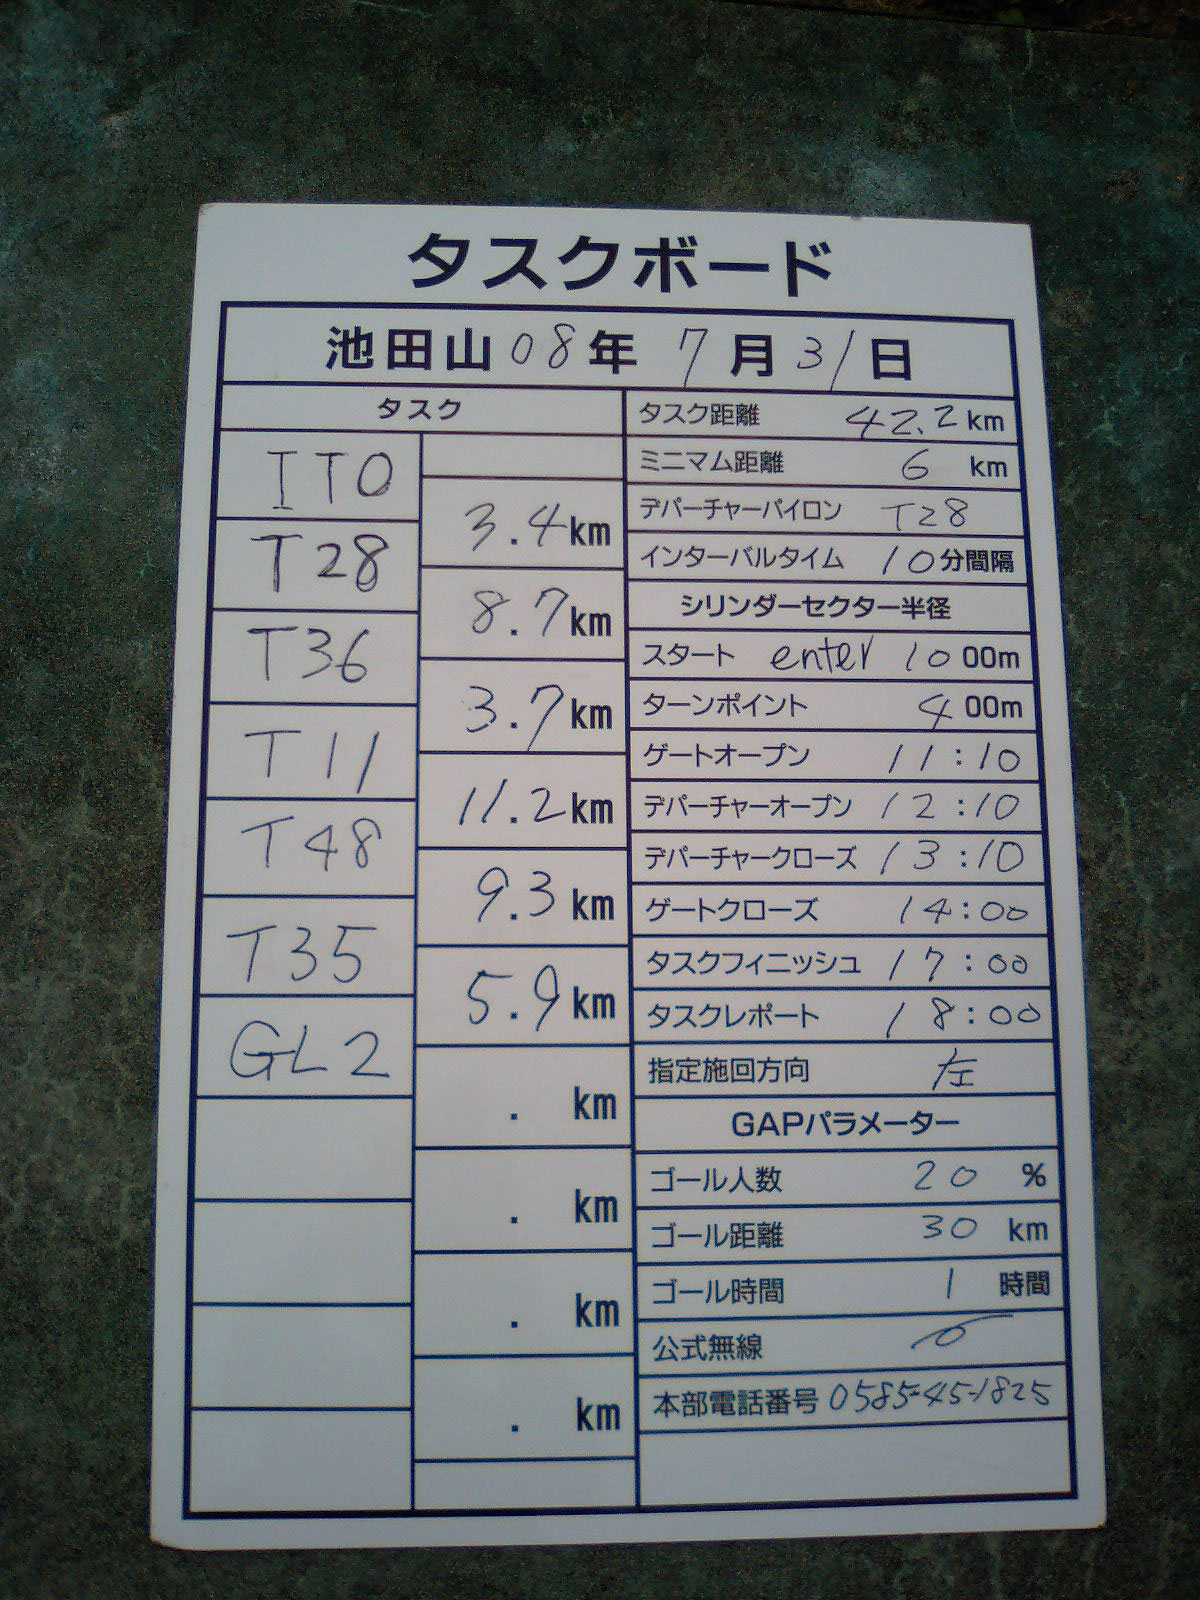 タスクボード
池田山 08年 7月 31日
タスク
ITO
3.4km
T28
8.7km
T36
3.7km
T11
11.2km
T48
9.3km
T35
5.9km
GL2
. km
. km
. km
. km
タスク距離 42.2 km
ミニマム距離 6 km
デパーチャーパイロン T28
インターバルタイム 10分間隔
シリンダーセクター半径
スタート enter 1000m
ターンポイント 400m
ゲートオープン 11:10
デパーチャーオープン 12:10
デパーチャークローズ 13:10
ゲートクローズ 14:00
タスクフィニッシュ 17:00
タスクレポート 18:00
指定施回方向 左
GAPパラメーター
ゴール人数 20 %
ゴール距離 30 km
ゴール時間 1 時間
公式無線
本部電話番号 0585-45-1825